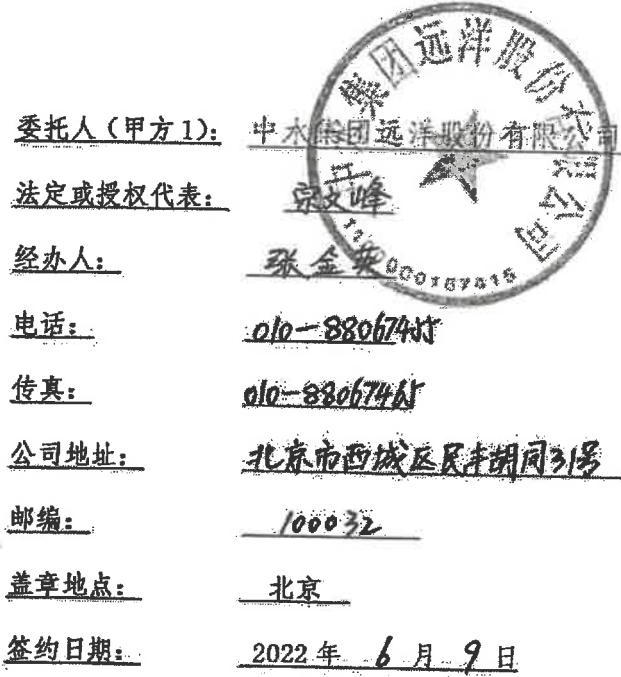 委托人（甲方1）： 中水集团远洋股份有限公司
法定或授权代表： 宗文峰
经办人： 张金英
电话： 010-88067455
传真： 010-88067465
公司地址： 北京市西城区民丰胡同31号
邮编： 100032
盖章地点： 北京
签约日期： 2022年 6 月 9 日
集团远洋股份有限公司